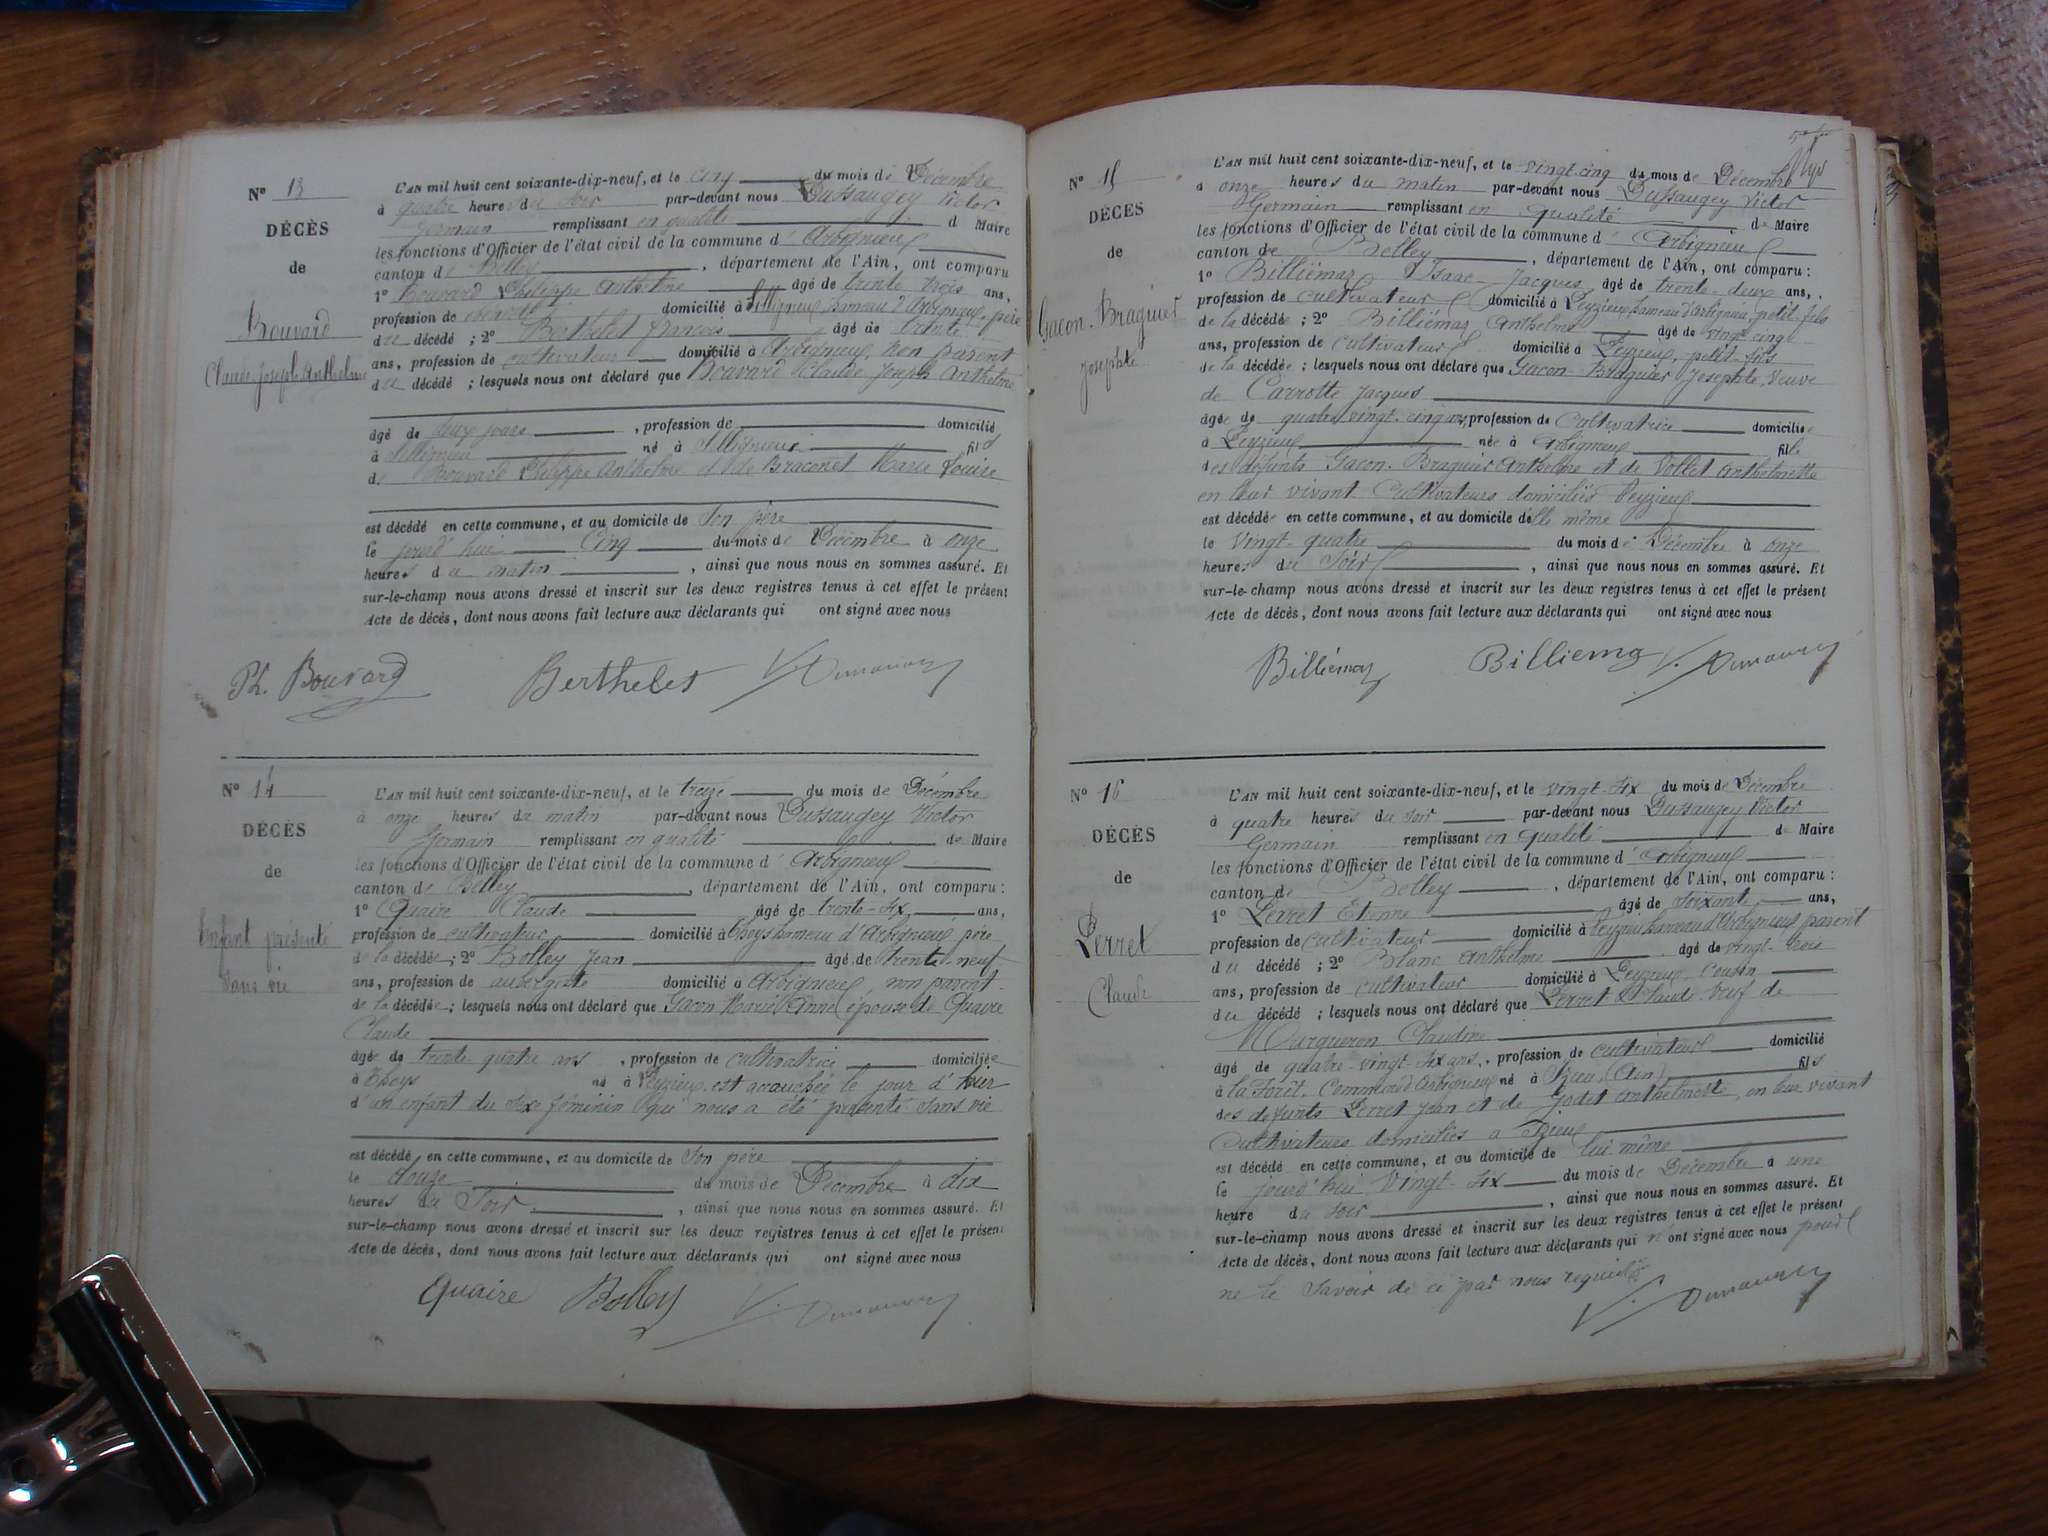 N° 13
DÉCÈS
de
Bouvard
Claude Joseph Anthelme
L'AN mil huit cent soixante-dix-neuf, et le cinq du mois de Décembre
à quatre heures du soir par-devant nous Dussaugey Victor
Germain remplissant en qualité de Maire
les fonctions d'Officier de l'état civil de la commune d'Arbignieu
canton de Belley, département de l'Ain, ont comparu
1° Bouvard Philippe Anthelme âgé de trente trois ans,
profession de domicilié à Sillignieu hameau d'Arbignieu, père
du décédé ; 2° Berthelet francois âgé de trente
ans, profession de cultivateur domicilié à Arbignieu, non parent
du décédé ; lesquels nous ont déclaré que Bouvard Claude Joseph Anthelme
âgé de deux jours, profession de domicilié
à Sillignieu né à Sillignieu fils
de Bouvard Philippe Anthelme et de Braconet Marie Louise
est décédé en cette commune, et au domicile de son père
le jourd'hui cinq du mois de Décembre à onze
heures du matin, ainsi que nous nous en sommes assuré. Et
sur-le-champ nous avons dressé et inscrit sur les deux registres tenus à cet effet le présent
Acte de décès, dont nous avons fait lecture aux déclarants qui ont signé avec nous
Ph. Bouvard Berthelet
N° 14
DÉCÈS
de
Enfant présenté
sans vie
L'AN mil huit cent soixante-dix-neuf, et le treize du mois de Décembre
à onze heures du matin par-devant nous Dussaugey Victor
Germain remplissant en qualité de Maire
les fonctions d'Officier de l'état civil de la commune d'Arbignieu
canton de Belley, département de l'Ain, ont comparu :
1° Quaire Claude âgé de trente-six ans,
profession de cultivateur domicilié à Thoys hameau d'Arbignieu père
de la décédée ; 2° Bolley Jean âgé de trente-neuf
ans, profession de aubergiste domicilié à Arbignieu, non parent
de la décédée ; lesquels nous ont déclaré que Gacon Marie Anne épouse de Quaire
Claude
âgée de trente quatre ans, profession de cultivatrice domiciliée
à Thoys né à Peyzieu est accouchée le jour d'hier
d'un enfant du sexe féminin qui nous a été présenté sans vie
est décédé en cette commune, et au domicile de son père
le douze du mois de Décembre à dix
heures du soir, ainsi que nous nous en sommes assuré. Et
sur-le-champ nous avons dressé et inscrit sur les deux registres tenus à cet effet le présent
Acte de décès, dont nous avons fait lecture aux déclarants qui ont signé avec nous
Quaire Bolley
N° 15
DÉCÈS
de
Gacon-Braguier
Josephte
L'AN mil huit cent soixante-dix-neuf, et le vingt-cinq du mois de Décembre
à onze heures du matin par-devant nous Dussaugey Victor
Germain remplissant en qualité de Maire
les fonctions d'Officier de l'état civil de la commune d'Arbignieu
canton de Belley, département de l'Ain, ont comparu :
1° Billiémaz Isaac-Jacques âgé de trente-deux ans,
profession de cultivateur domicilié à Peyzieu hameau d'Arbignieu, petit-fils
de la décédée ; 2° Billiémaz Anthelme âgé de vingt-cinq
ans, profession de cultivateur domicilié à Peyzieu, petit-fils
de la décédée ; lesquels nous ont déclaré que Gacon-Braguier Josephte, Veuve
de Carrotte Jacques
âgée de quatre vingt-cinq ans, profession de cultivatrice domiciliée
à Peyzieu née à Arbignieu fille
des défunts Gacon-Braguier Anthelme et de Vollet Anthelmette
en leur vivant cultivateurs domiciliés Peyzieu
est décédée en cette commune, et au domicile d'elle même
le vingt-quatre du mois de Décembre à onze
heures du soir, ainsi que nous nous en sommes assuré. Et
sur-le-champ nous avons dressé et inscrit sur les deux registres tenus à cet effet le présent
Acte de décès, dont nous avons fait lecture aux déclarants qui ont signé avec nous
Billiémaz Billiemaz
N° 16
DÉCÈS
de
Perret
Claude
L'AN mil huit cent soixante-dix-neuf, et le vingt-six du mois de Décembre
à quatre heures du soir par-devant nous Dussaugey Victor
Germain remplissant en qualité de Maire
les fonctions d'Officier de l'état civil de la commune d'Arbignieu
canton de Belley, département de l'Ain, ont comparu :
1° Perret Etienne âgé de soixante ans,
profession de cultivateur domicilié à Peyzieu hameau d'Arbignieu parent
du décédé ; 2° Blanc Anthelme âgé de vingt-trois
ans, profession de cultivateur domicilié à Peyzieu, Cousin
du décédé ; lesquels nous ont déclaré que Perret Claude veuf de
Marqueron Claudine
âgé de quatre-vingt-six ans, profession de cultivateur domicilié
à la Forêt, Commune d'Arbignieu né à Izieu (Ain) fils
des défunts Perret Jean et de Godet Anthelmette, en leur vivant
Cultivateurs domiciliés à Izieu
est décédé en cette commune, et au domicile de lui même
le jourd'hui vingt-six du mois de Décembre à une
heure du soir, ainsi que nous nous en sommes assuré. Et
sur-le-champ nous avons dressé et inscrit sur les deux registres tenus à cet effet le présent
Acte de décès, dont nous avons fait lecture aux déclarants qui n'ont signé avec nous pour
ne le savoir de ce par nous requis